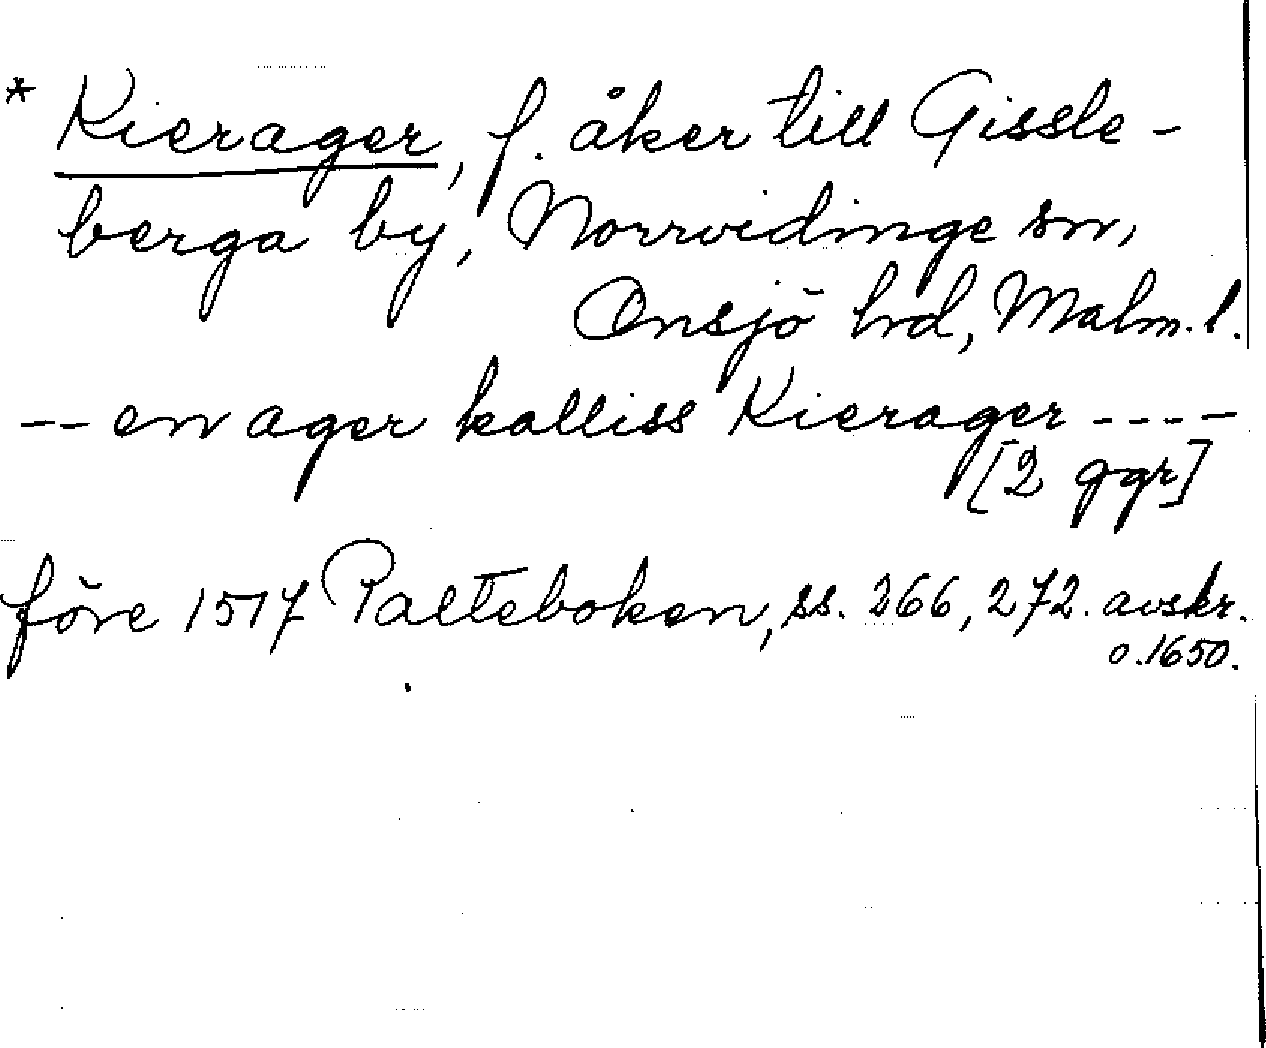 * Kierager, f. åker till Gissle-
berga by, Norrvidinge sn,
Onsjö hd, Malm. l.
-- en ager kalliss Kierager ----
[2 ggr]
före 1517 Palteboken, ss. 266, 272. avskr.
o. 1650.